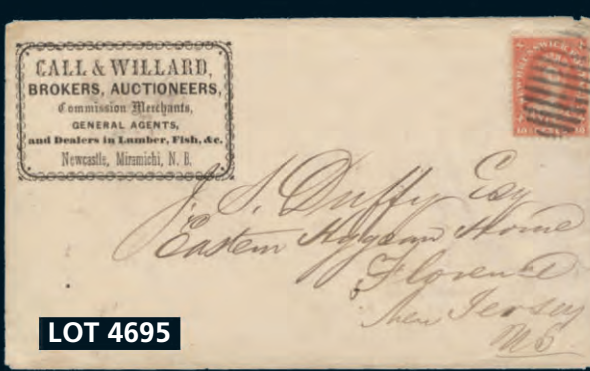 CALL & WILLARD,
BROKERS, AUCTIONEERS,
Commission Merchants,
GENERAL AGENTS,
and Dealers in Lumber, Fish, &c.
Newcastle, Miramichi, N. B.
NEW BRUNSWICK
10 CENTS 10
J. S. Duffy Esq
Eastern Hygean Home
Florence
New Jersey
LOT 4695